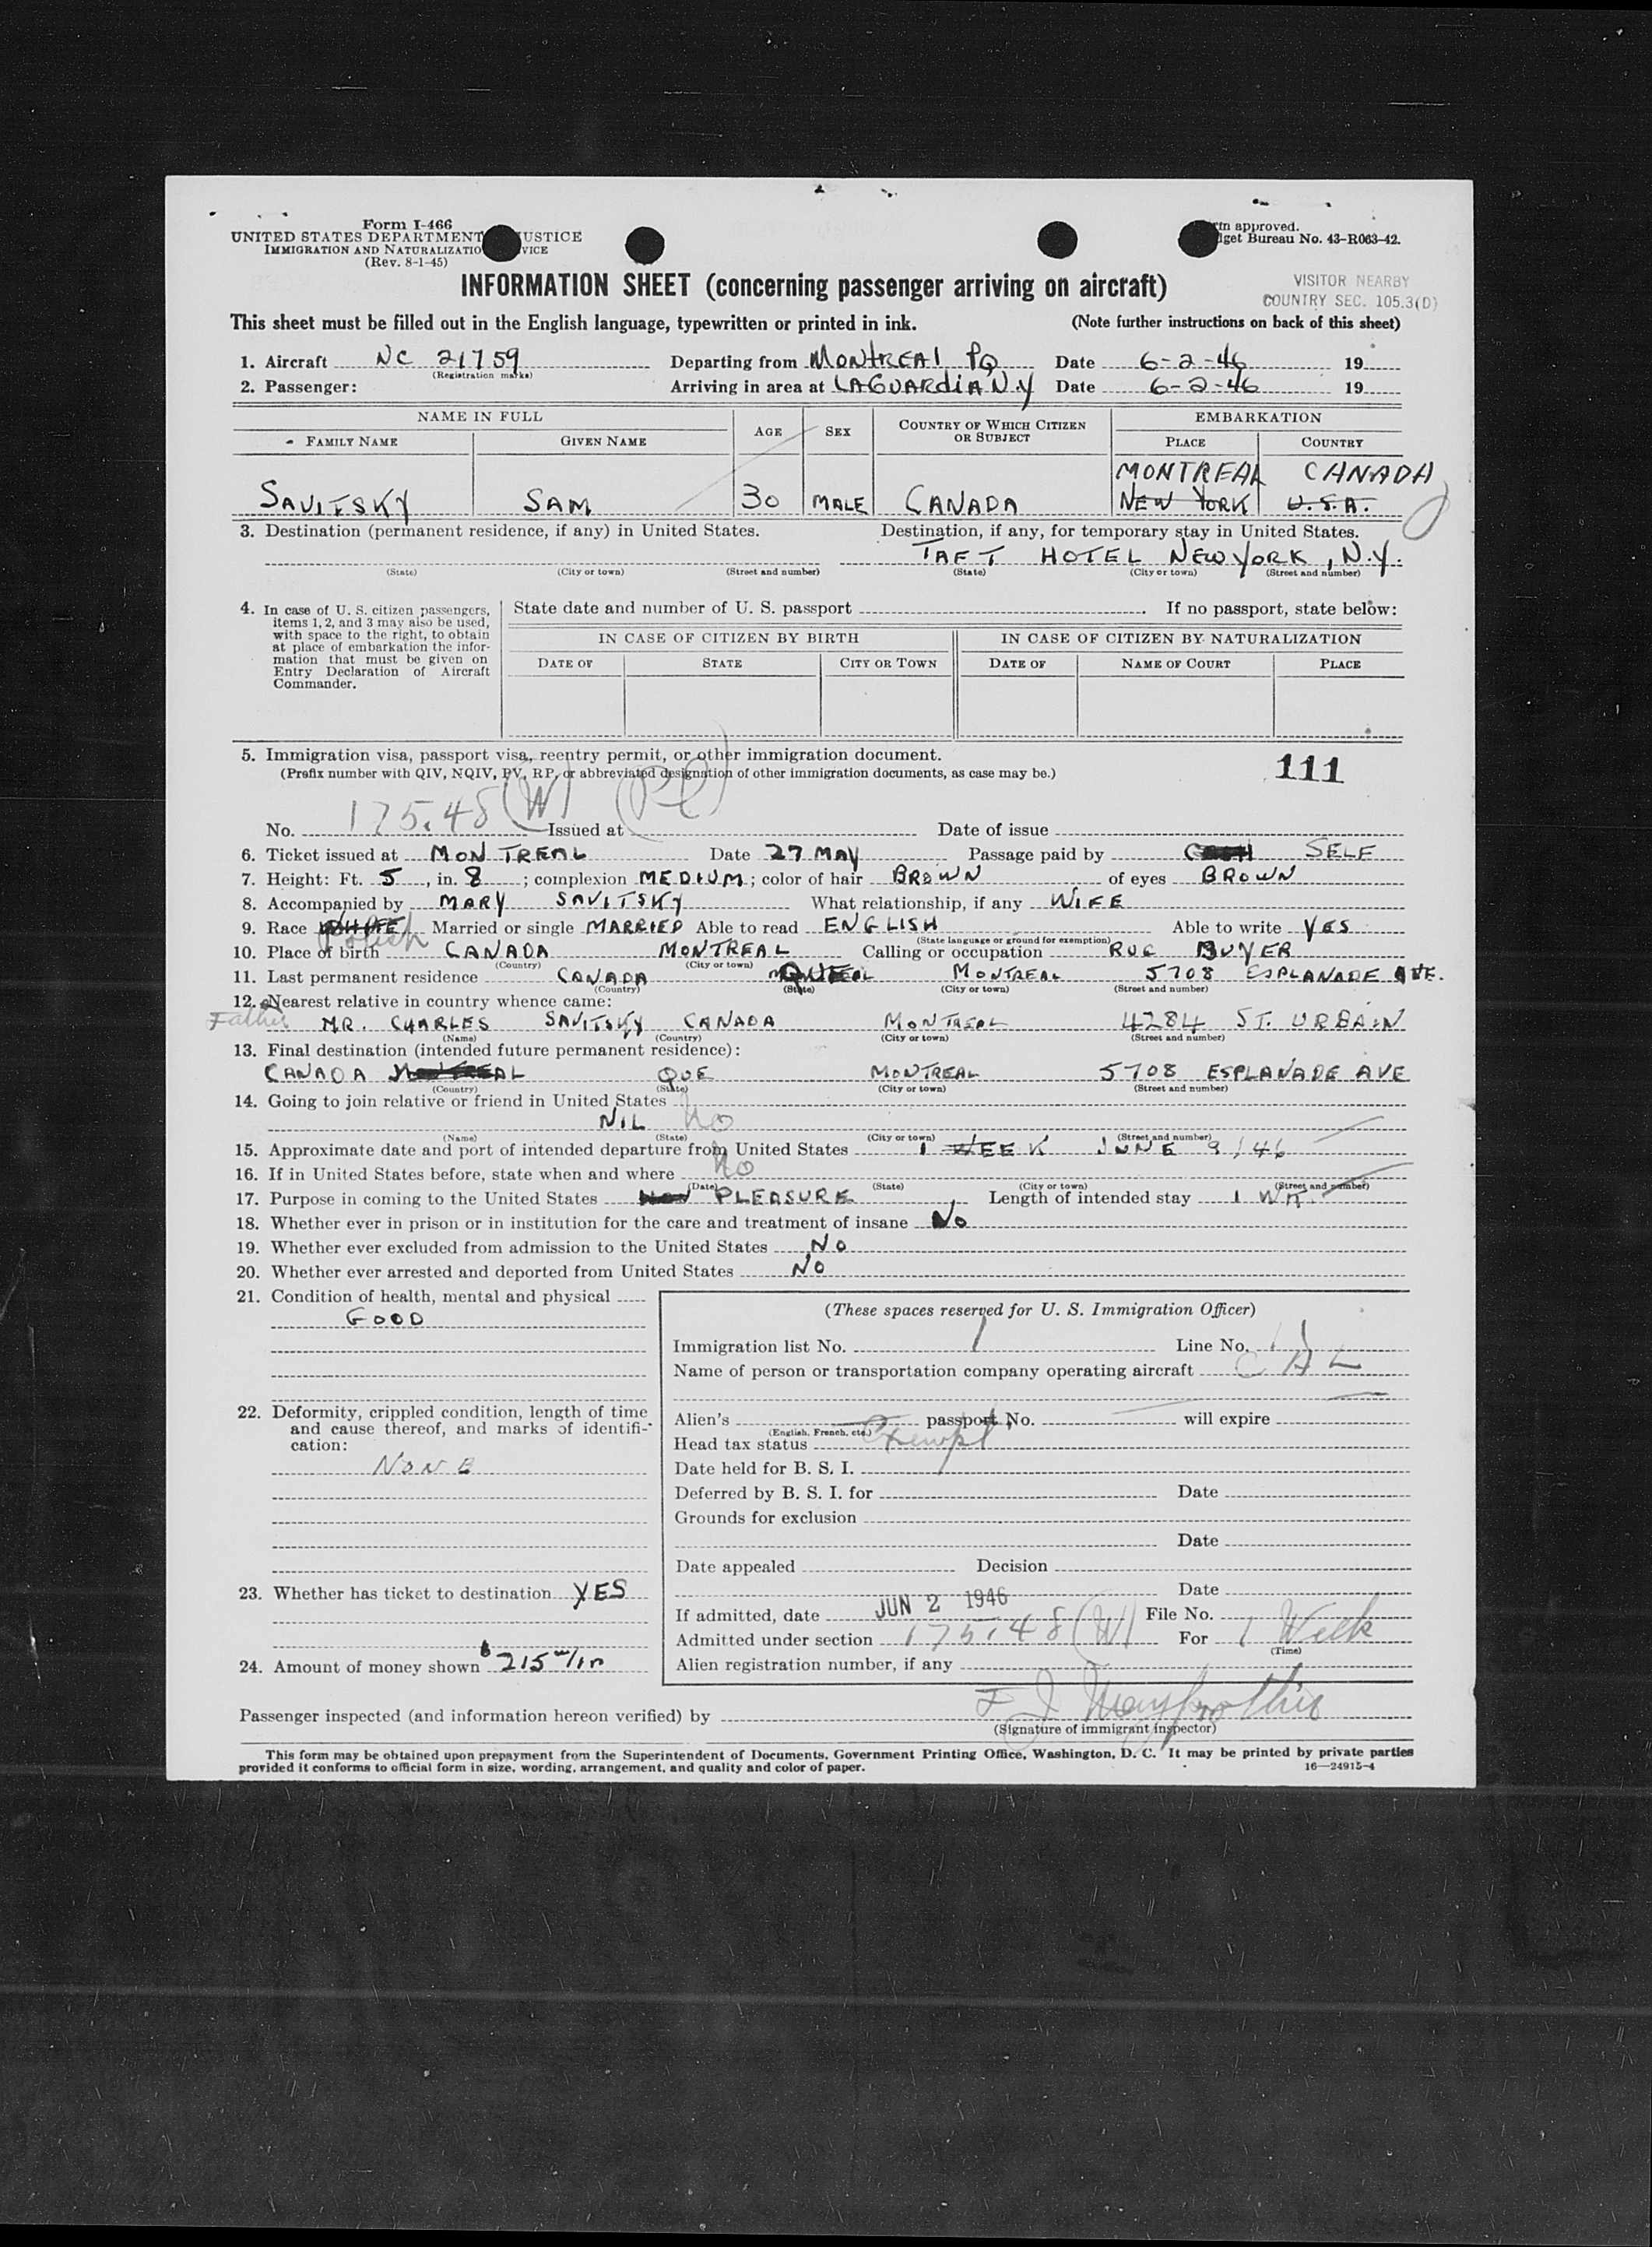 Form I-466
UNITED STATES DEPARTMENT JUSTICE
IMMIGRATION AND NATURALIZATIO VICE
(Rev. 8-1-45)
m approved.
dget Bureau No. 43-R063-42.
INFORMATION SHEET (concerning passenger arriving on aircraft)
VISITOR NEARBY
COUNTRY SEC. 105.3(D)
This sheet must be filled out in the English language, typewritten or printed in ink. (Note further instructions on back of this sheet)
1. Aircraft NC 21759 Departing from MONTREAL PQ Date 6-2-46 19
(Registration marks)
2. Passenger: Arriving in area at LAGUARDIA N.Y Date 6-2-46 19
NAME IN FULL AGE SEX COUNTRY OF WHICH CITIZEN OR SUBJECT EMBARKATION
FAMILY NAME GIVEN NAME PLACE COUNTRY
MONTREAL CANADA
SAVITSKY SAM 30 MALE CANADA NEW YORK U.S.A.
3. Destination (permanent residence, if any) in United States. Destination, if any, for temporary stay in United States.
TAFT HOTEL NEW YORK, N.Y.
(State) (City or town) (Street and number) (State) (City or town) (Street and number)
4. In case of U. S. citizen passengers, items 1, 2, and 3 may also be used, with space to the right, to obtain at place of embarkation the information that must be given on Entry Declaration of Aircraft Commander.
State date and number of U. S. passport . If no passport, state below:
IN CASE OF CITIZEN BY BIRTH IN CASE OF CITIZEN BY NATURALIZATION
DATE OF STATE CITY OR TOWN DATE OF NAME OF COURT PLACE
5. Immigration visa, passport visa, reentry permit, or other immigration document.
(Prefix number with QIV, NQIV, PV, RP, or abbreviated designation of other immigration documents, as case may be.)
111
No. 175.48 (W) Issued at Date of issue
6. Ticket issued at MONTREAL Date 27 MAY Passage paid by SELF
7. Height: Ft. 5, in. 8; complexion MEDIUM; color of hair BROWN of eyes BROWN
8. Accompanied by MARY SAVITSKY What relationship, if any WIFE
9. Race WHITE Polish Married or single MARRIED Able to read ENGLISH Able to write YES
(State language or ground for exemption)
10. Place of birth CANADA MONTREAL Calling or occupation RUG BUYER
(Country) (City or town)
11. Last permanent residence CANADA QUE MONTREAL 5708 ESPLANADE AVE.
(Country) (State) (City or town) (Street and number)
12. Nearest relative in country whence came:
Father MR. CHARLES SAVITSKY CANADA MONTREAL 4284 ST. URBAIN
(Name) (Country) (City or town) (Street and number)
13. Final destination (intended future permanent residence):
CANADA MONTREAL QUE MONTREAL 5708 ESPLANADE AVE
(Country) (State) (City or town) (Street and number)
14. Going to join relative or friend in United States
NIL No
(Name) (State) (City or town) (Street and number)
15. Approximate date and port of intended departure from United States 1 WEEK JUNE 9/46
16. If in United States before, state when and where No
(Date) (State) (City or town) (Street and number)
17. Purpose in coming to the United States PLEASURE, Length of intended stay 1 WK.
18. Whether ever in prison or in institution for the care and treatment of insane No
19. Whether ever excluded from admission to the United States No
20. Whether ever arrested and deported from United States No
21. Condition of health, mental and physical
GOOD
22. Deformity, crippled condition, length of time and cause thereof, and marks of identification:
NONE
23. Whether has ticket to destination YES
24. Amount of money shown $215
(These spaces reserved for U. S. Immigration Officer)
Immigration list No. 1 Line No. 11
Name of person or transportation company operating aircraft CAL
Alien's passport No. will expire
(English, French, etc.)
Head tax status Exempt
Date held for B. S. I.
Deferred by B. S. I. for Date
Grounds for exclusion
Date
Date appealed Decision
Date
If admitted, date JUN 2 1946 File No.
Admitted under section 175.48 (W) For 1 Week
(Time)
Alien registration number, if any
Passenger inspected (and information hereon verified) by
(Signature of immigrant inspector)
This form may be obtained upon prepayment from the Superintendent of Documents, Government Printing Office, Washington, D. C. It may be printed by private parties
provided it conforms to official form in size, wording, arrangement, and quality and color of paper. 16—24915-4